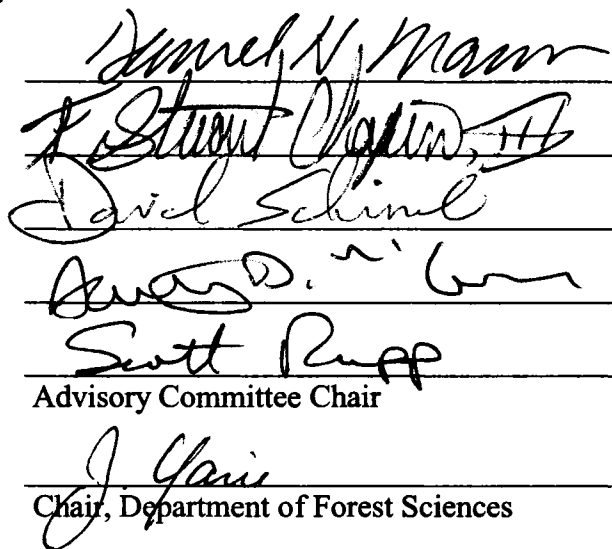 Daniel H. Mann
F. Stuart Chapin, III
David Schimel
D.
Scott Rupp
Advisory Committee Chair
J. Yarie
Chair, Department of Forest Sciences